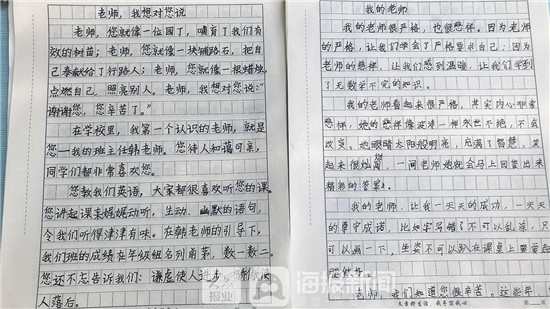 老师，我想对您说
老师，您就像一位园丁，哺育了我们有
效的树苗；老师，您就像一块铺路石，把自
己奉献给了行路人；老师，您就像一根蜡烛，
点燃自己，照亮别人。老师，我想对您说："
谢谢您，您辛苦了。"
在学校里，我第一个认识的老师，就是
您一我的班主任韩老师。您待人和蔼可亲，
同学们都非常喜欢您。
您教我们英语，大家都很喜欢听您的课。
您讲起课来娓娓动听，生动、幽默的语句，
令我们听得津津有味。在韩老师的引导下，
我们班的成绩在年级组名列前茅，数一数二。
您还不忘告诉我们：谦虚使人进步，
人落后。
我的老师
我的老师很严格，也很慈祥，因为老师
的严格，让我们学会了严格要求自己；因为
老师的慈祥，让我们感到温暖，让我们学到
了无数学不完的知识。
我的老师看起来很严格，其实内心非常
慈祥，她的慈祥像波冲一样永世不绝，不会
改变。她眼睛太阳般明亮，充满了智慧，
起来很灿烂，一问老师她就会马上回答出来
精彩的答案。
我的老师，让我一天天的成功，一天天
的遵守成语，比如字写错了不可以乱杀，只
可以画一下，坐姿不可以趴在课桌上要
老师，我们知道您很辛苦。这些年，
文章新生活，我手写我心。
海报新闻